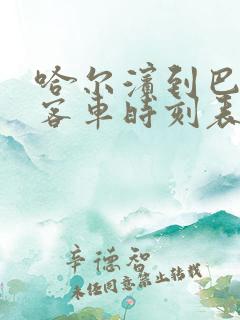 哈尔滨到巴
客车时刻表
辛德智
未经同意禁止转载